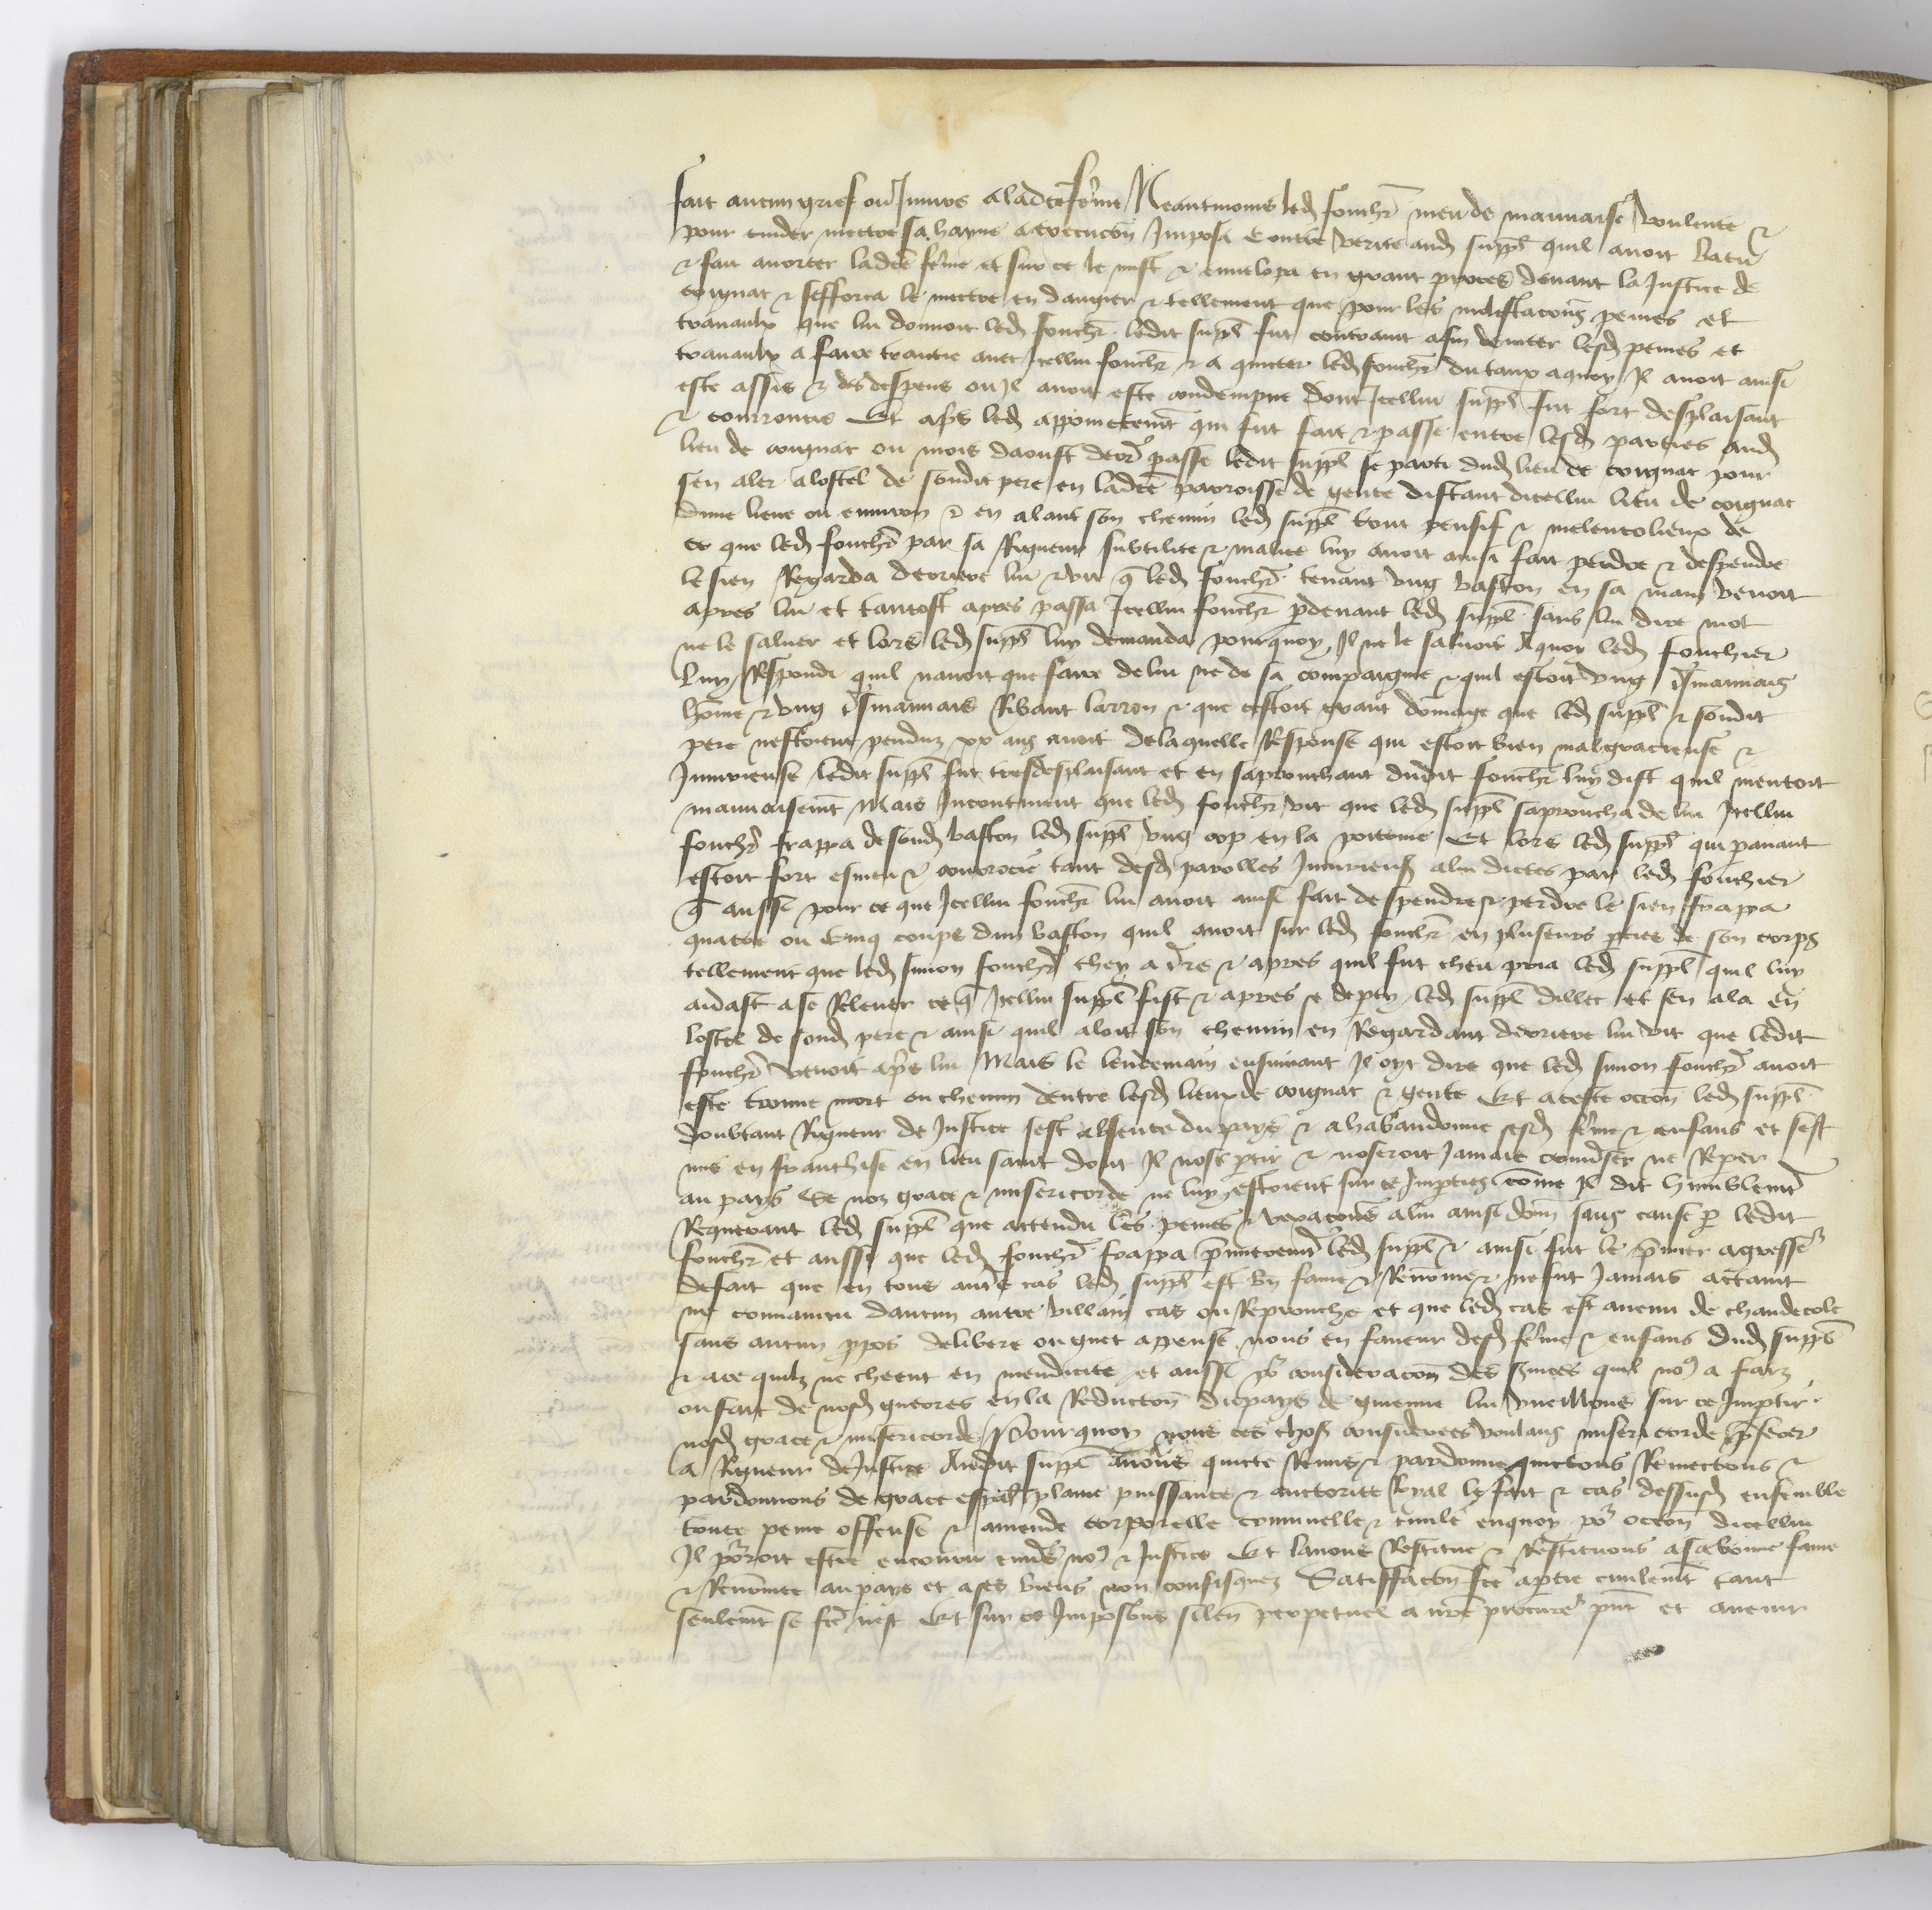 fait aucun grief ou Iniure a ladcte feme Neantmoins led foucher meu de mauuaise voulente &
pour cuider mectre sa hayne a execucon Imposa contre verite aud suppl quil auoit batu
& fait auorter ladcte feme et sur ce le mist & enuelopa en grant proces deuant la Justice de
coignac & sefforca le mectre en dangier & tellement que pour les molestacons peines et
trauaulx que lui donnoit led foucher ledit suppl fut contraint afin deuiter lesd peines et
trauaulx a faire traictie auec Icellui foucher & a quicter led foucher du taux aquoy Il auoit ainsi
este assis & des despens ou Il auoit este condempne dont Icellui suppl fut fort desplaisant
& courroucie Et apres led appoinctement qui fut fait & passe entre lesd parties aud
lieu de coignac ou mois daoust derr passe ledit suppl se parti dud lieu de coignac pour
sen aler a lostel de sondit pere en ladcte parroisse de gente distant dicellui lieu de coignac
dune lieue ou enuiron & en alant son chemin led suppl tout pensif & melencolieux de
ce que led foucher par sa Rigueur subtilite & malice luy auoit ainsi fait perdre & despendre
le sien Regarda derriere lui & vit q led foucher tenant vng baston en sa main venoit
apres lui et tantost apres passa Icellui foucher pdeuant led suppl sans lui dire mot
ne le saluer et lors led suppl luy demanda pourquoy Il ne le saluoit Aquoy led fouchier
luy Respondi quil nauoit que faire de lui ne de sa compaignie & quil estoit vng tsmauuais
home & vng tsmauuais Ribaut larron & que cestoit grant domaige que led suppl & sondit
pere nestoient penduz xx ans auoit de laquelle Response qui estoit bien malgracieuse &
Iniurieuse ledit suppl fut tresdesplaisant et en saprouchant dudit foucher luy dist quil mentoit
mauuaisemt Mais Incontinent que led foucher vit que led suppl saproucha de lui Icellui
foucher frappa de sond baston led suppl vng cop en la poictrine Et lors led suppl qui parauant
estoit fort esmeu & courocie tant desd parolles Iniurieuses a lui dictes par led fouchier
q aussi pour ce que Icellui foucher lui auoit ainsi fait despendre & perdre le sien frappa
quatre ou cinq coups dun baston quil auoit sur led foucher en pluseurs pties de son corps
tellement que led simon foucher chey a tre & apres quil fut cheu pria led suppl quil luy
aidast a se Releuer ce q Icellui suppl fist & apres se depty led suppl dillec et sen ala en
lostel de sond pere & ainsi quil aloit son chemin en Regardant derriere lui vit que ledit
foucher venoit apres lui Mais le lendemain ensuiuant Il oyt dire que led simon foucher auoit
este trouue mort ou chemin dentre lesd lieux de coignac & gente Et a ceste occon led suppl
doubtant Rigueur de Justice sest absente du pays & a habandonne sesd feme & enfans et sest
mis en franchise en lieu saint dont Il nose ptir & noseroit Jamais conuser ne Reper
au pays Se noz grace & misericorde ne luy estoient sur ce Impties come Il dit humblemt
Requerant led suppl que attendu les peines & vexacons a lui ainsi donn sans cause p ledit
foucher et aussi que led foucher frappa pmieremt led suppl & ainsi fut le pmier agresse
de fait que en tous autres cas led suppl est bn fame & Renomme & ne fut Jamais actaint
ne conuaincu daucun autre villain cas ou Reprouche et que led cas est auenu de chaudecole
sans aucun ppos delibere ou guet appense nous en faueur desd feme & enfans dud suppl
& a ce quilz ne cheent en mendicite et aussi por consideracon des suices quil nos a faiz
ou fait de nosd guerres en la Reducton du pays de guienne lui vueillons sur ce Imptir
nosd grace & misericorde Pourquoy nous ces chos considerees voulans misericorde pferer
a Rigueur de Justice Audit suppl auons quicte Remis & pardonne quictons Remectons &
pardonnons de grace espal plaine puissance & auctorite Royal le fait & cas dessusd ensemble
toute peine offense & amende corporelle criminelle & ciuile enquoy por occon dicellui
Il porroit estre encouru enuers nos & Justice Et lauons Restitue & Restituons a sa bonne fame
& Renomee au pays et a ses biens non confisquez Satisfacton fte a ptie ciuilemt tant
seulemt se fte nest Et sur ce Imposons silen perpetuel a nre procure pnt et auenir